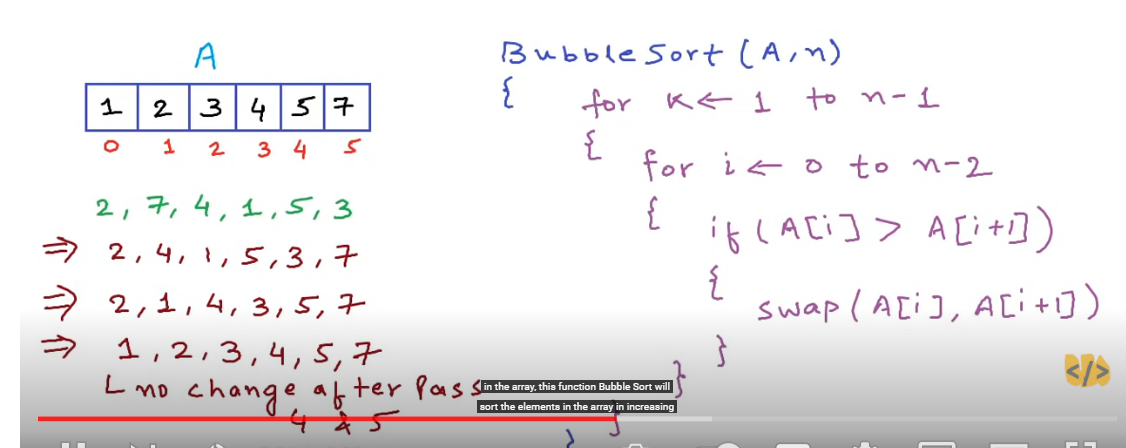 A
1 2 3 4 5 7
0 1 2 3 4 5
2, 7, 4, 1, 5, 3
⇒ 2, 4, 1, 5, 3, 7
⇒ 2, 1, 4, 3, 5, 7
⇒ 1, 2, 3, 4, 5, 7
no change after Pass
4 & 5
BubbleSort (A, n)
{
for K ← 1 to n-1
{
for i ← 0 to n-2
{
if (A[i] > A[i+1])
{
swap (A[i], A[i+1])
}
}
}
}
in the array, this function Bubble Sort will
sort the elements in the array in increasing
</>